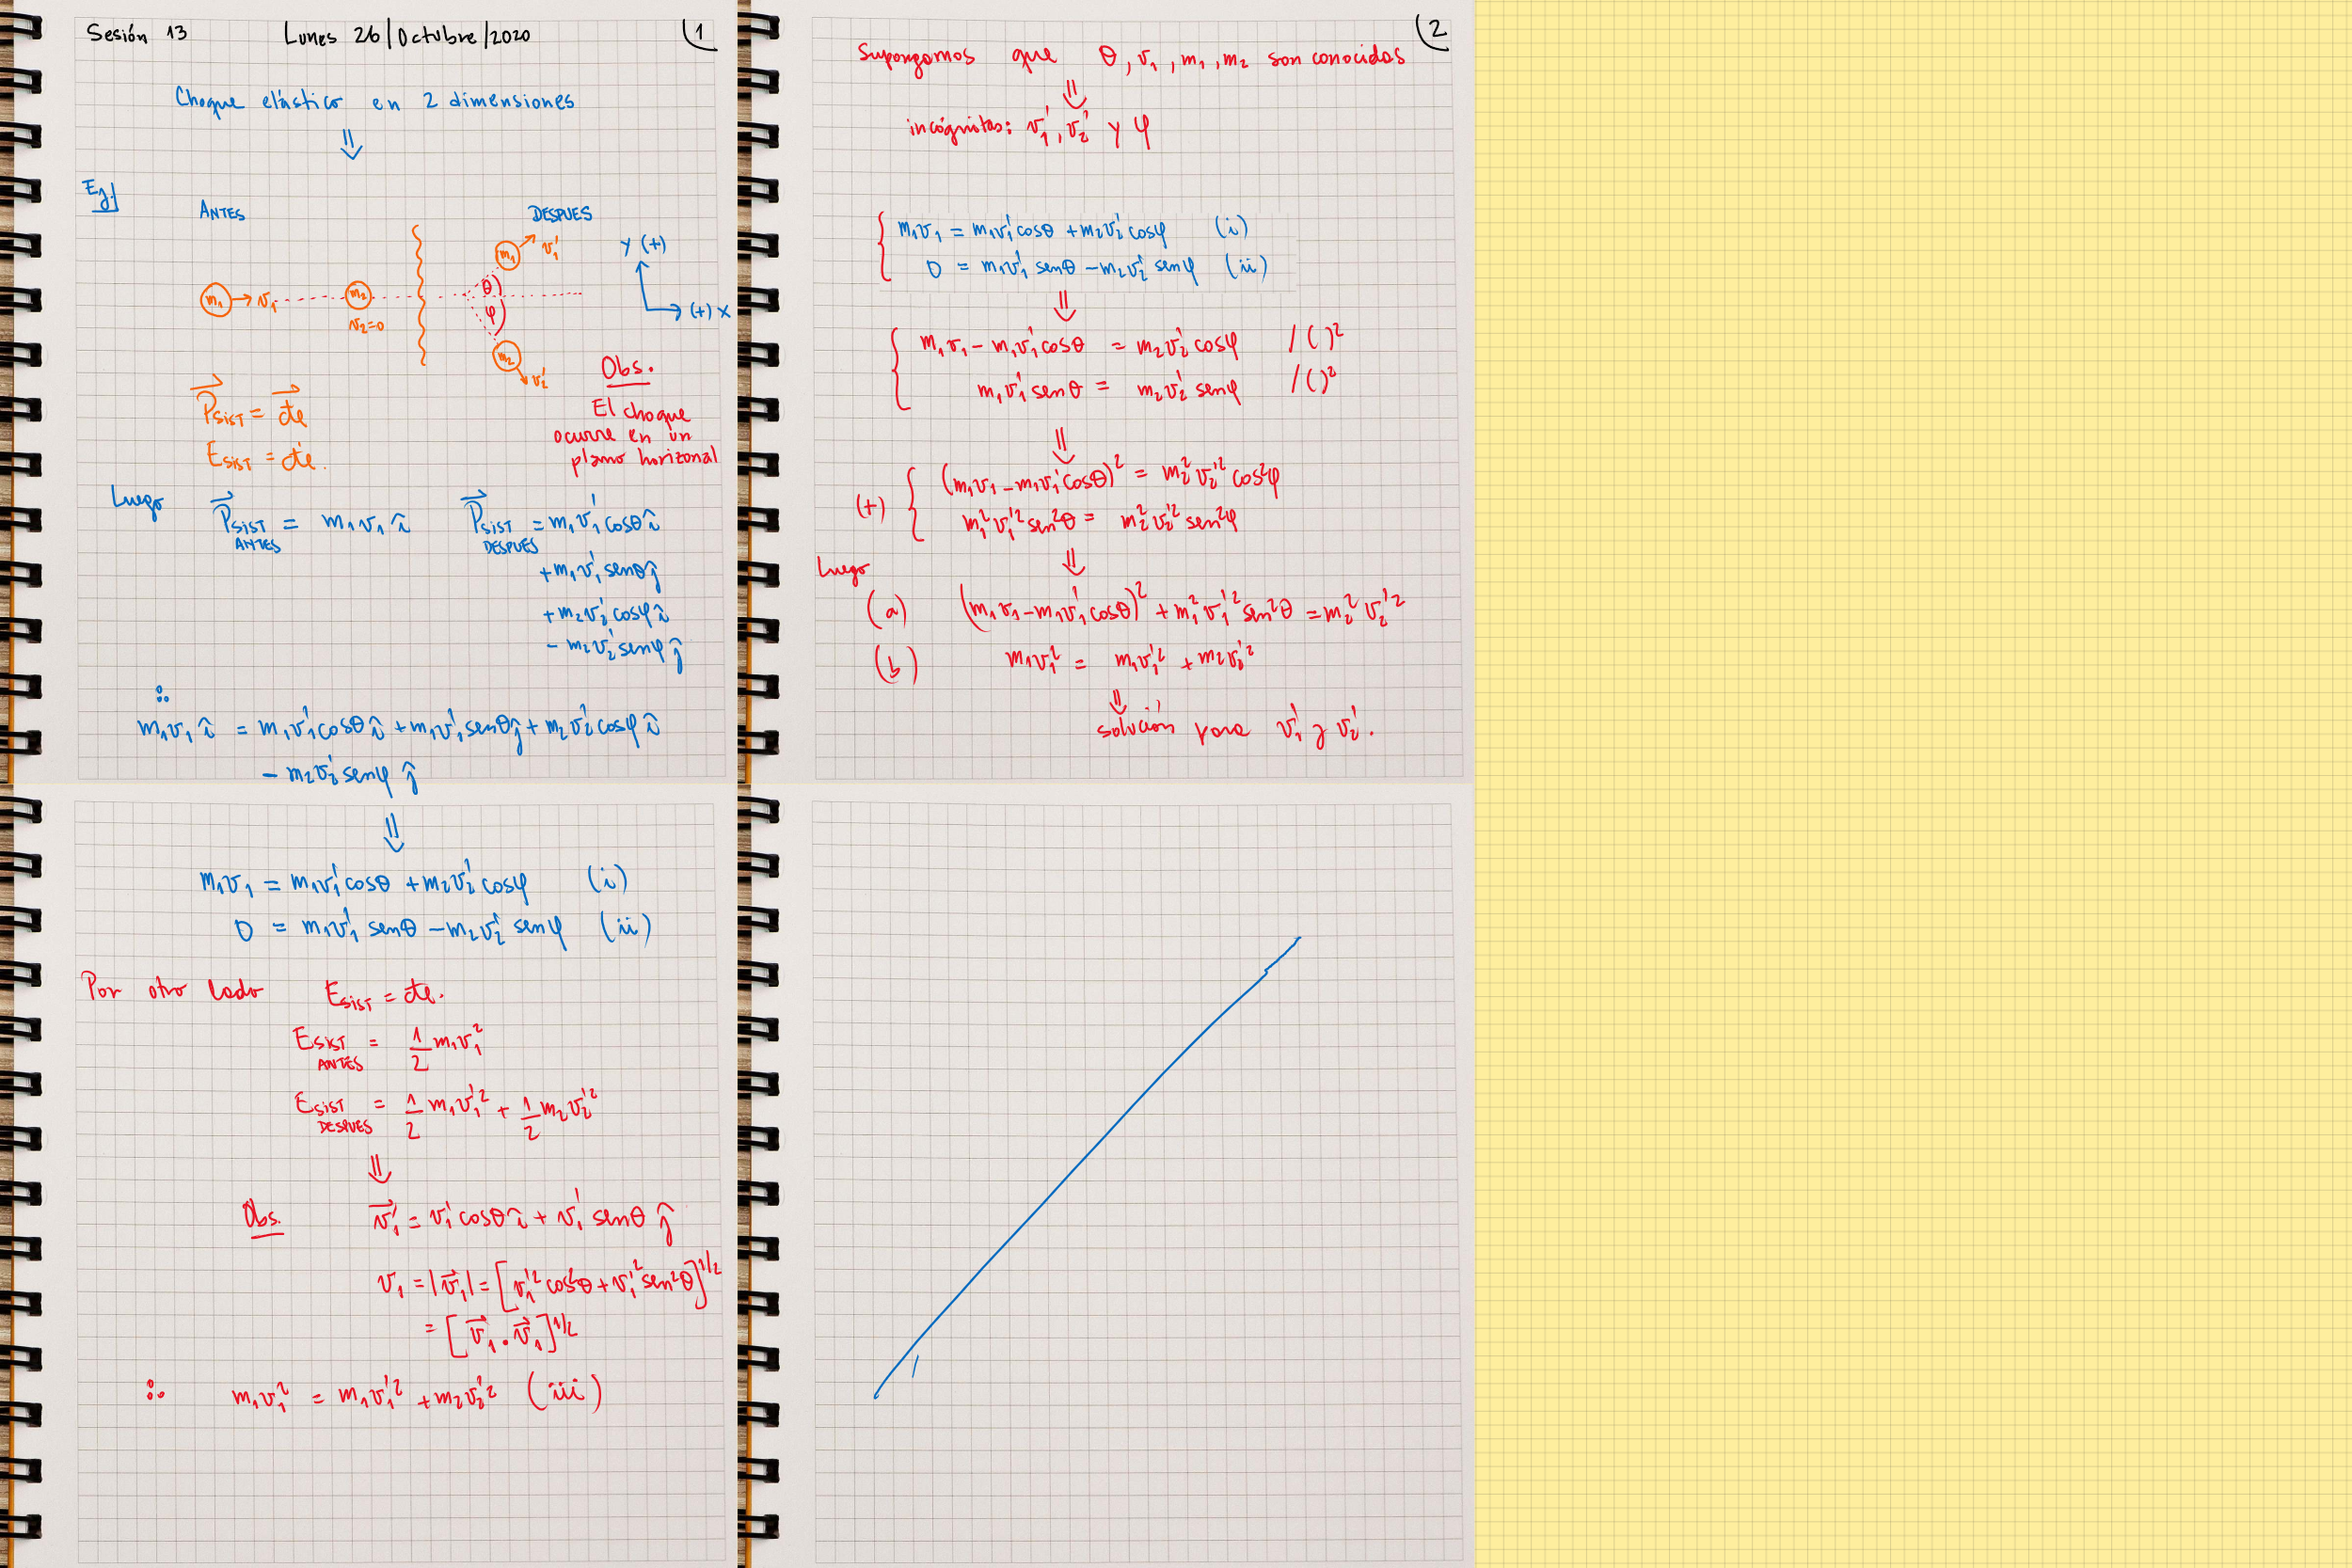 Sesión 13 Lunes 26/Octubre/2020 1
Choque elástico en 2 dimensiones
⇓
Ej
ANTES DESPUES
m₁ → v₁ m₂ v₂=0
m₁ v₁' θ φ m₂ v₂'
y (+)
(+) x
Obs.
El choque
ocurre en un
plano horizonal
P⃗SIST = c⃗te
ESIST = cte.
Luego P⃗SIST ANTES = m₁v₁ î P⃗SIST DESPUES = m₁v₁' cosθ î
+ m₁v₁' senθ ĵ
+ m₂v₂' cosφ î
- m₂v₂' senφ ĵ
∴
m₁v₁ î = m₁v₁' cosθ î + m₁v₁' senθ ĵ + m₂v₂' cosφ î
- m₂v₂' senφ ĵ
⇓
m₁v₁ = m₁v₁' cosθ + m₂v₂' cosφ (i)
0 = m₁v₁' senθ - m₂v₂' senφ (ii)
Por otro lado ESIST = cte.
ESIST ANTES = 1/2 m₁v₁²
ESIST DESPUES = 1/2 m₁v₁'² + 1/2 m₂v₂'²
⇓
Obs. v⃗₁' = v₁' cosθ î + v₁' senθ ĵ
v₁ = |v⃗₁| = [v₁'² cos²θ + v₁'² sen²θ]^1/2
= [v⃗₁ · v⃗₁]^1/2
∴ m₁v₁² = m₁v₁'² + m₂v₂'² (iii)
2
Supongamos que θ, v₁, m₁, m₂ son conocidas
⇓
incógnitas: v₁', v₂' y φ
m₁v₁ = m₁v₁' cosθ + m₂v₂' cosφ (i)
0 = m₁v₁' senθ - m₂v₂' senφ (ii)
⇓
m₁v₁ - m₁v₁' cosθ = m₂v₂' cosφ /( )²
m₁v₁' senθ = m₂v₂' senφ /( )²
⇓
(m₁v₁ - m₁v₁' cosθ)² = m₂² v₂'² cos²φ
(+)
m₁² v₁'² sen²θ = m₂² v₂'² sen²φ
⇓
Luego
(a) (m₁v₁ - m₁v₁' cosθ)² + m₁² v₁'² sen²θ = m₂² v₂'²
(b) m₁v₁² = m₁v₁'² + m₂v₂'²
⇓
solución para v₁' y v₂'.